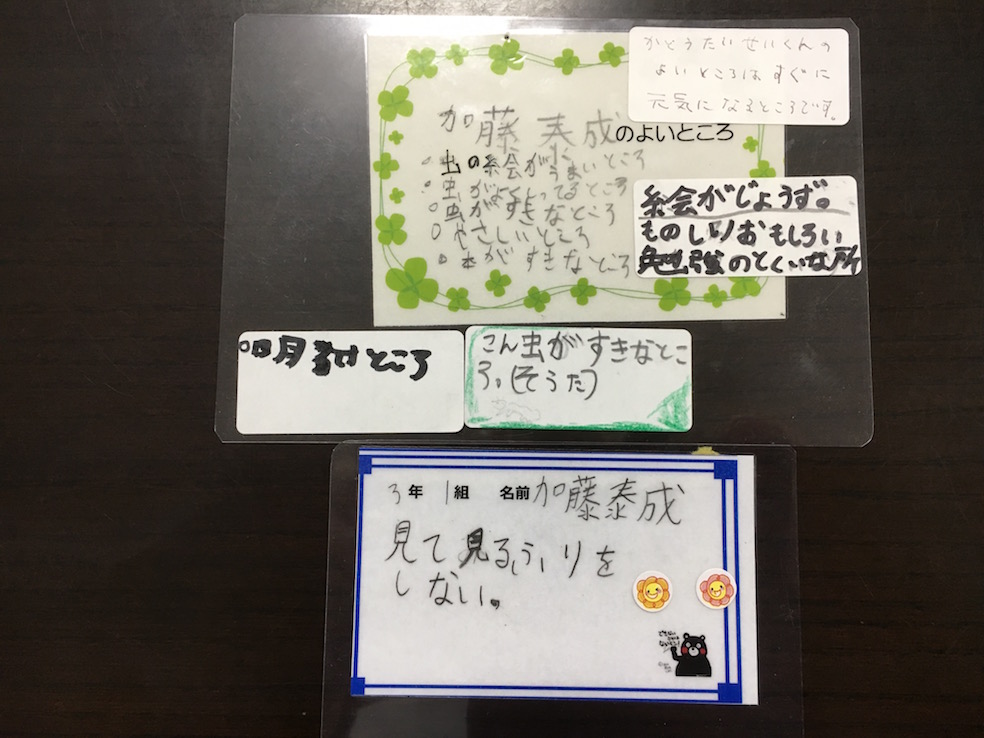 かとうたいせいくんの
よいところはすぐに
元気になるところです。
加藤泰成のよいところ
虫の絵がうまいところ
虫がよくしってるところ
虫がすきなところ
やさしいところ
本がすきなところ
絵がじょうず。
ものしりおもしろい
勉強のとくいな所
明るいところ
こん虫がすきなとこ
ろ。(そうた)
3年 1組 名前 加藤泰成
見て見るふりを
しない。